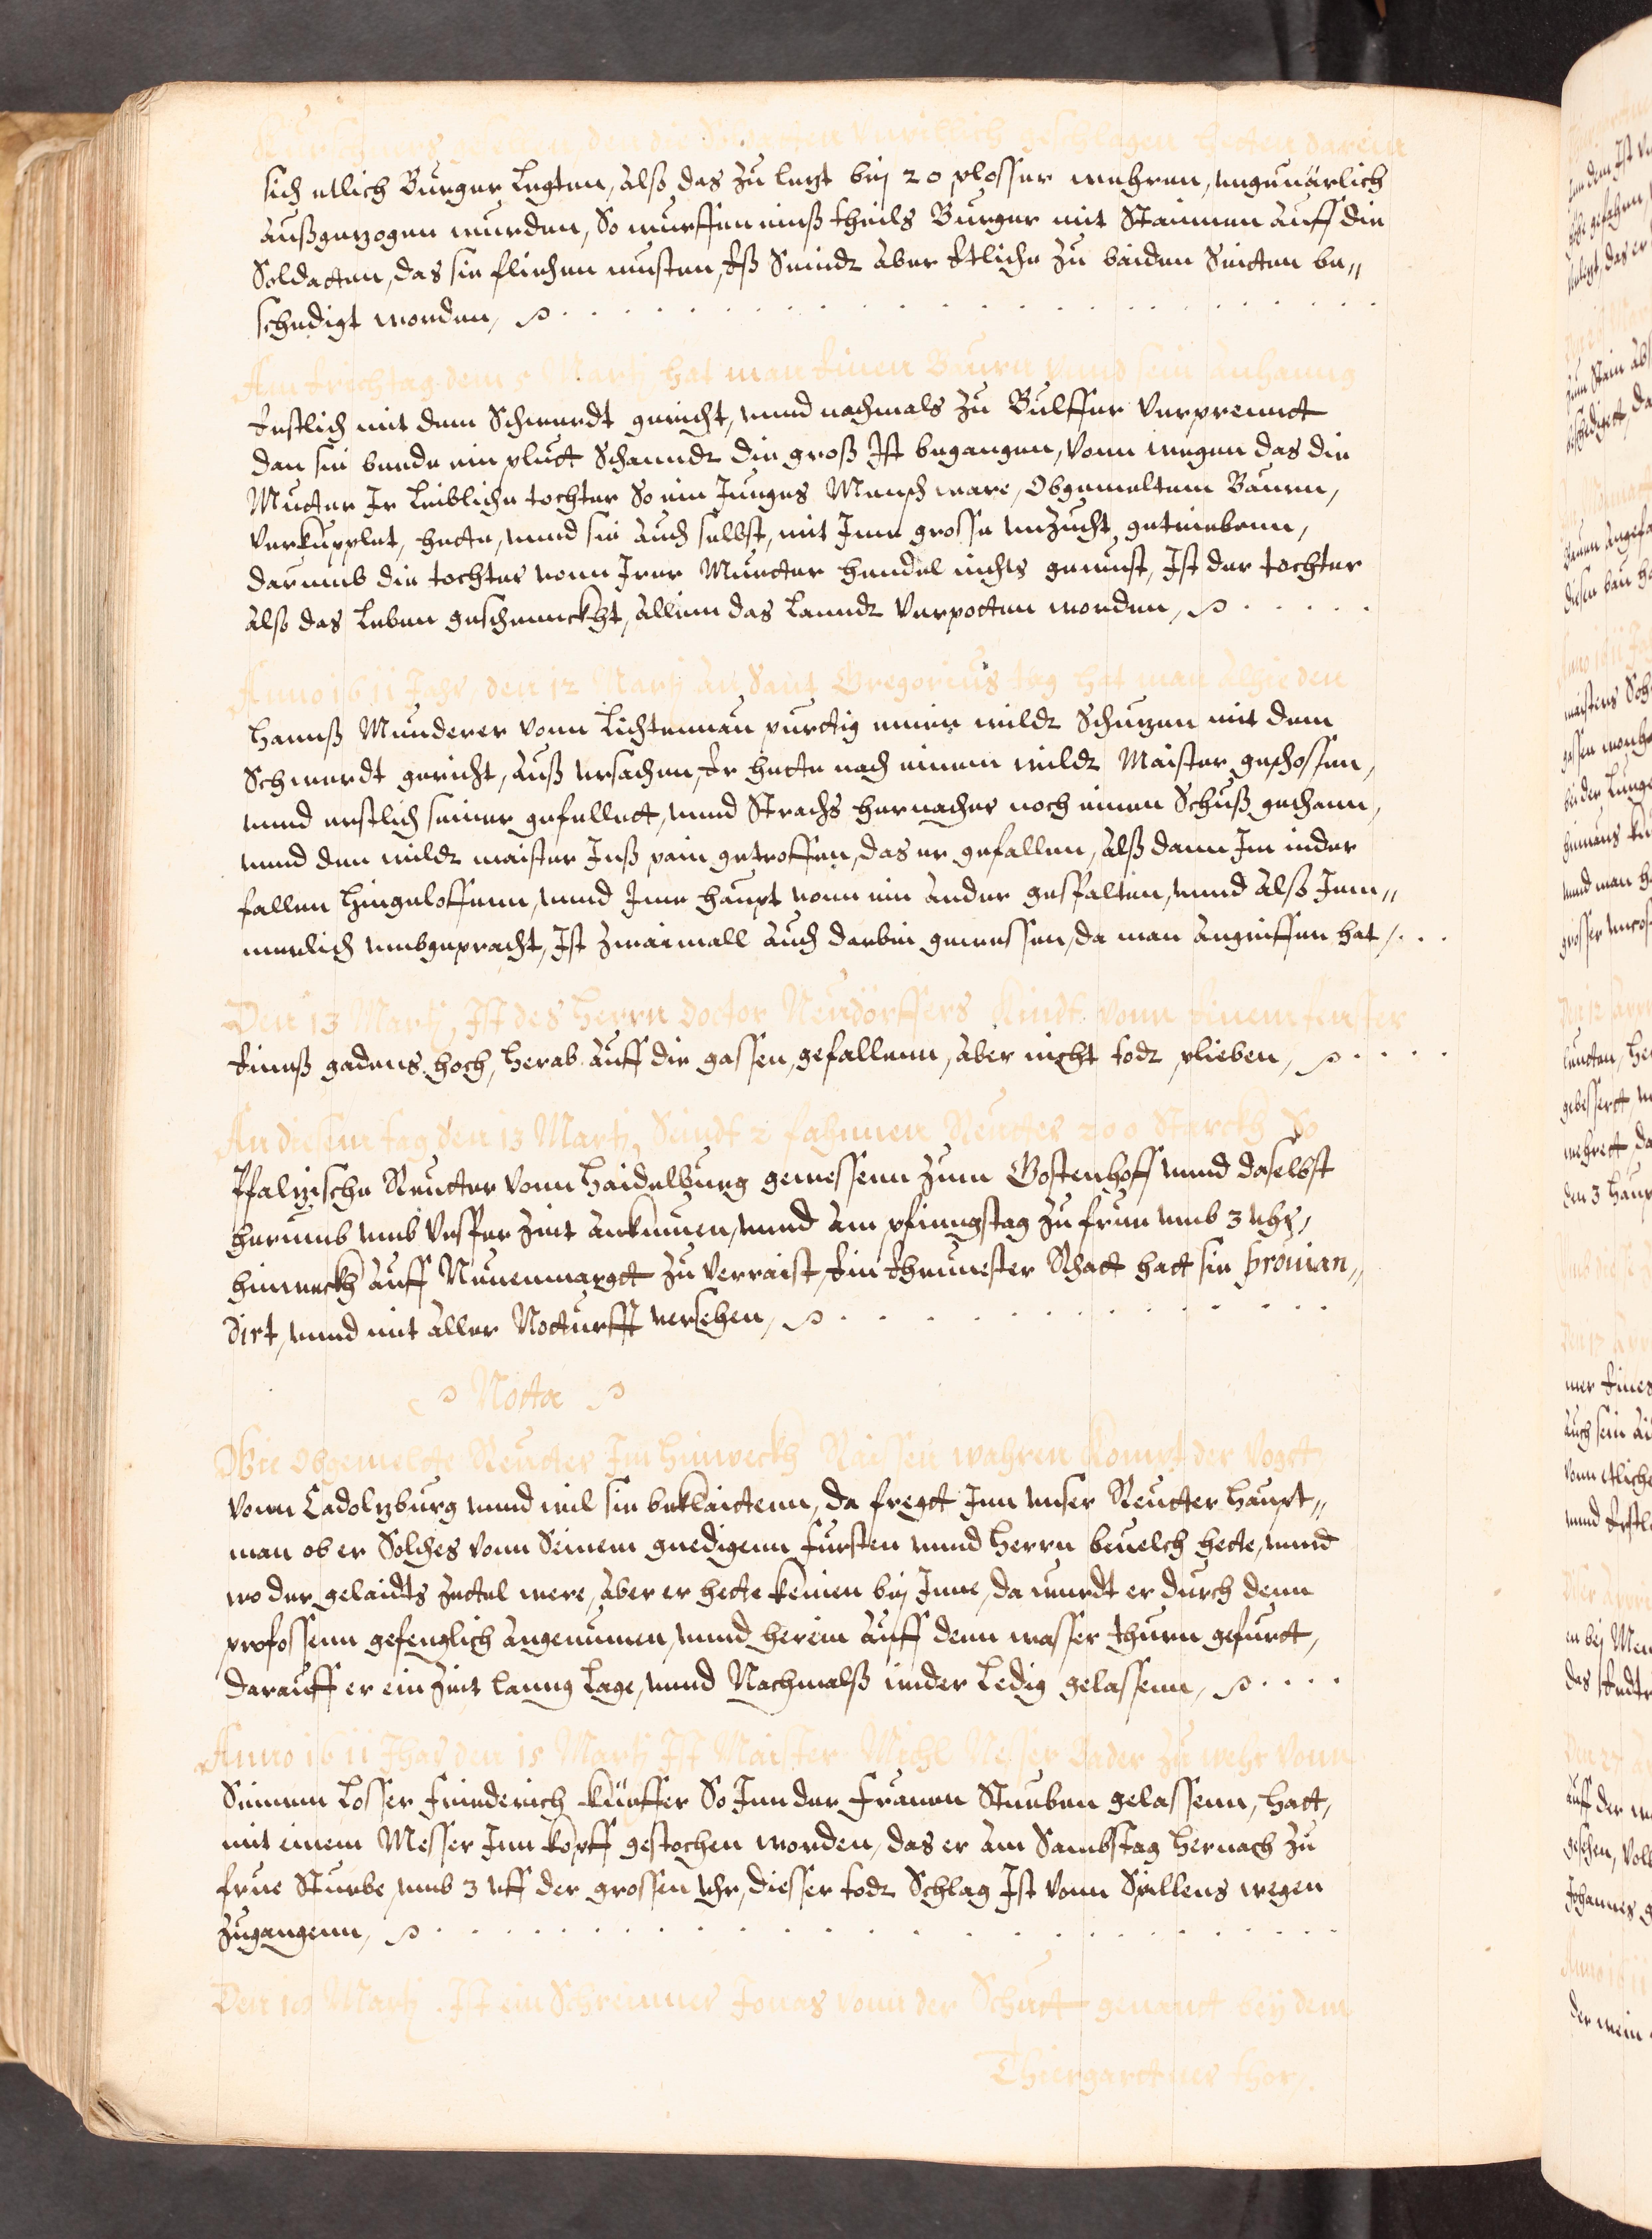 Kürschners gesellen, den die Soldatten Unpillich geschlagen hetten darein
sich etlich Burger Legten, Alß das zu letzt bey 20 plosser wehren, ungeuärlich
Außgetzogen wurden, So wurffen einß theils Burger mit Stainnen Auff die
Soldatten, das sie fliehen musten, Eß Seindt Aber Etliche zu baiden Seitten be„
schedigt worden,
Am Erichtag dem 5 Martj hat man Einen Baurn unnd sein Anhanng
Erstlich mit dem Schwerdt gericht, unnd nachmals zu Bulffer Verprennt
dan sie beede ein plutt Schanndt die groß Ist begangen, Vonn wegen das die
Mutter Ir Leibliche tochter So ein Junges Mensch ware, Obgemeltem Baurn,
Verkupplet, hette, unnd sie Auch selbst, mit Ime grosse unzucht, getriebenn,
darumb die tochter vonn Irer Muetter handel nichts gewust, Ist der tochter
Alß das Leben geschennckht, Allein das Lanndt Verpotten worden,
Anno 1611 Jahr, den 12 Martj An Sant Gregorius tag hat man Alhie den
Hannß Munderer Vonn Lichtennau purttig einen wildt Schutzen mit dem
Schwerdt gericht, Auß ursachen, Er hette nach einem wildt Maister geschossen,
unnd erstlich seiner gefellett, unnd Strachs hernacher noch einen Schuß gethann,
unnd den wildt maister Inß pain getroffen, das er gefallen, Alß dann Im in der
fallen Hingeloffenn, unnd Ime haupt vonn ein Ander gespalten, unnd Alß Jem„
merlich umbgepracht, Ist zwaimall Auch darbei gewessen, da man Angriffen hat
Den 13 Martj, Ist des Herrn Doctor Neudörffers Kindt Vonn Einem fenster
Eineß gadens hoch, Herab Auff die gassen, gefallenn, Aber nicht todt plieben,
An diesem tag den 13 Martj, Seindt 2 fahnnen Reutter 200 Starckh So
Pfaltzische Reutter Vonn Haidelburg gewessenn zum Gostenhoff unnd daselbst
herumb umb Vesper zeit Ankumen, unnd Am pfinngstag zu frue umb 3 uhr,
hinweckh Auff Neuenmargtt zu Verraist, Ein Ehrnuester Rhatt hatt sie prouian„
dirt, unnd mit Aller Notturfft versehen,
Notta
Wie Obgemelte Reutter Im hinweckh Raissen wahren Kompt der Vogtt
Vonn Cadoltzburg unnd wil sie beklaittenn, da fregtt Inn unser Reutter Haupt„
man ob er Solches Vonn Seinem gnedigenn fursten unnd Herrn beuelch hette, unnd
wo der gelaidts zettel were, Aber er hette keinen bey Inne, da wurdt er durch denn
profossenn gefenglich Angenumen, unnd herein Auff denn wasser thurn gefurtt,
darauff er ein zeit lanng Lage, unnd Nachmalß wider Ledig gelassenn,
Anno 1611 Jhar den 15 Martj Ist Maister Michl Messer Bader zu wehr Vonn
Seinem Losser Friederich Küeffer So Inn der Frauen Stueben gelassenn, hatt,
mit einem Messer Inn kopff gestochen worden, das er Am Sambstag Hernach zu
frue Sturbe, umb 3 uff der grossen uhr, diesser todt Schlag Ist Vonn Spillens wegen
zugangenn,
Den Martj. Ist ein Schreinner Jonas vonn der Schutt genantt bey dem
Thiergarttner thor,